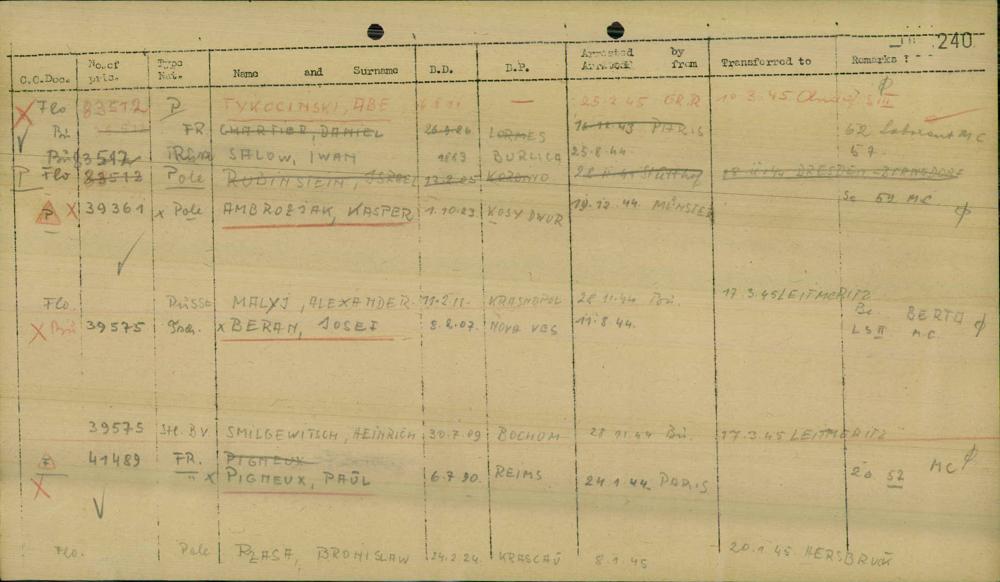 240
C.C.Doc. No.of pris. Type Nat. Name and Surname B.D. B.P. Arrested by from Transferred to Remarks :
Flo 83512 P TYKOCINSKI, ABE — 25.2.45 GR.R 10.3.45 III
Bú FR. CHARTIER, DANIEL LORMES 16.11.43 PARIS 62 MC
Bú 83512 SALOW, IWAN 1883 BURLICA 25.8.44 57
P Flo 83513 Pole RUBINSTEIN, ISRAEL 28.11.44 Stutthof DRESDEN
P X 39361 x Pole AMBROZIAK, KASPER 1.10.23 KOSY DWUR 19.12.44 MÜNSTER 59 MC
Flo. Russe MALYJ, ALEXANDER 11.2.11. KRASNOPOL 28.11.44 Bú. 17.3.45 LEITMERITZ
X Bú 39575 x BERAN, JOSEF 8.2.07. NOVA VES 11.8.44. BERTA
LS II MC
39575 SMILGEWITSCH, HEINRICH 30.7.09 BOCHUM 28.11.44 Bú. 17.3.45 LEITMERITZ
41489 FR. PIGNEUX
" x PIGNEUX, PAUL 6.7.90. REIMS 24.1.44. PARIS 20 52 MC
Flo. Pole PŁASA, BRONISLAW 24.2.24. KRASCAU 8.1.45 20.1.45 HERSBRUCK